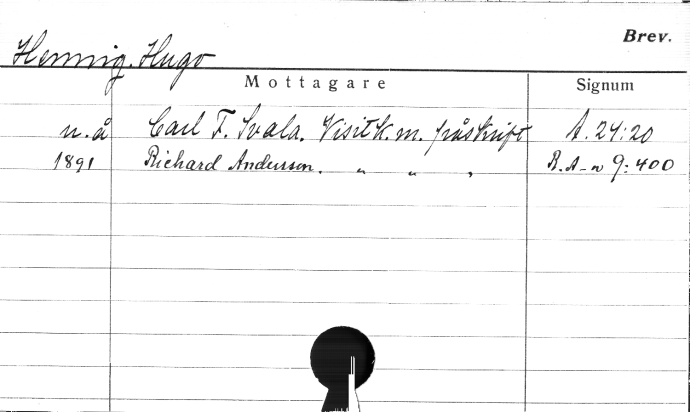 Brev.
Hennig, Hugo
Mottagare Signum
u.å Carl F. Svala. Visitk. m. påskrift A. 24:20
1891 Richard Andersson. " " " R. A-n 9:400